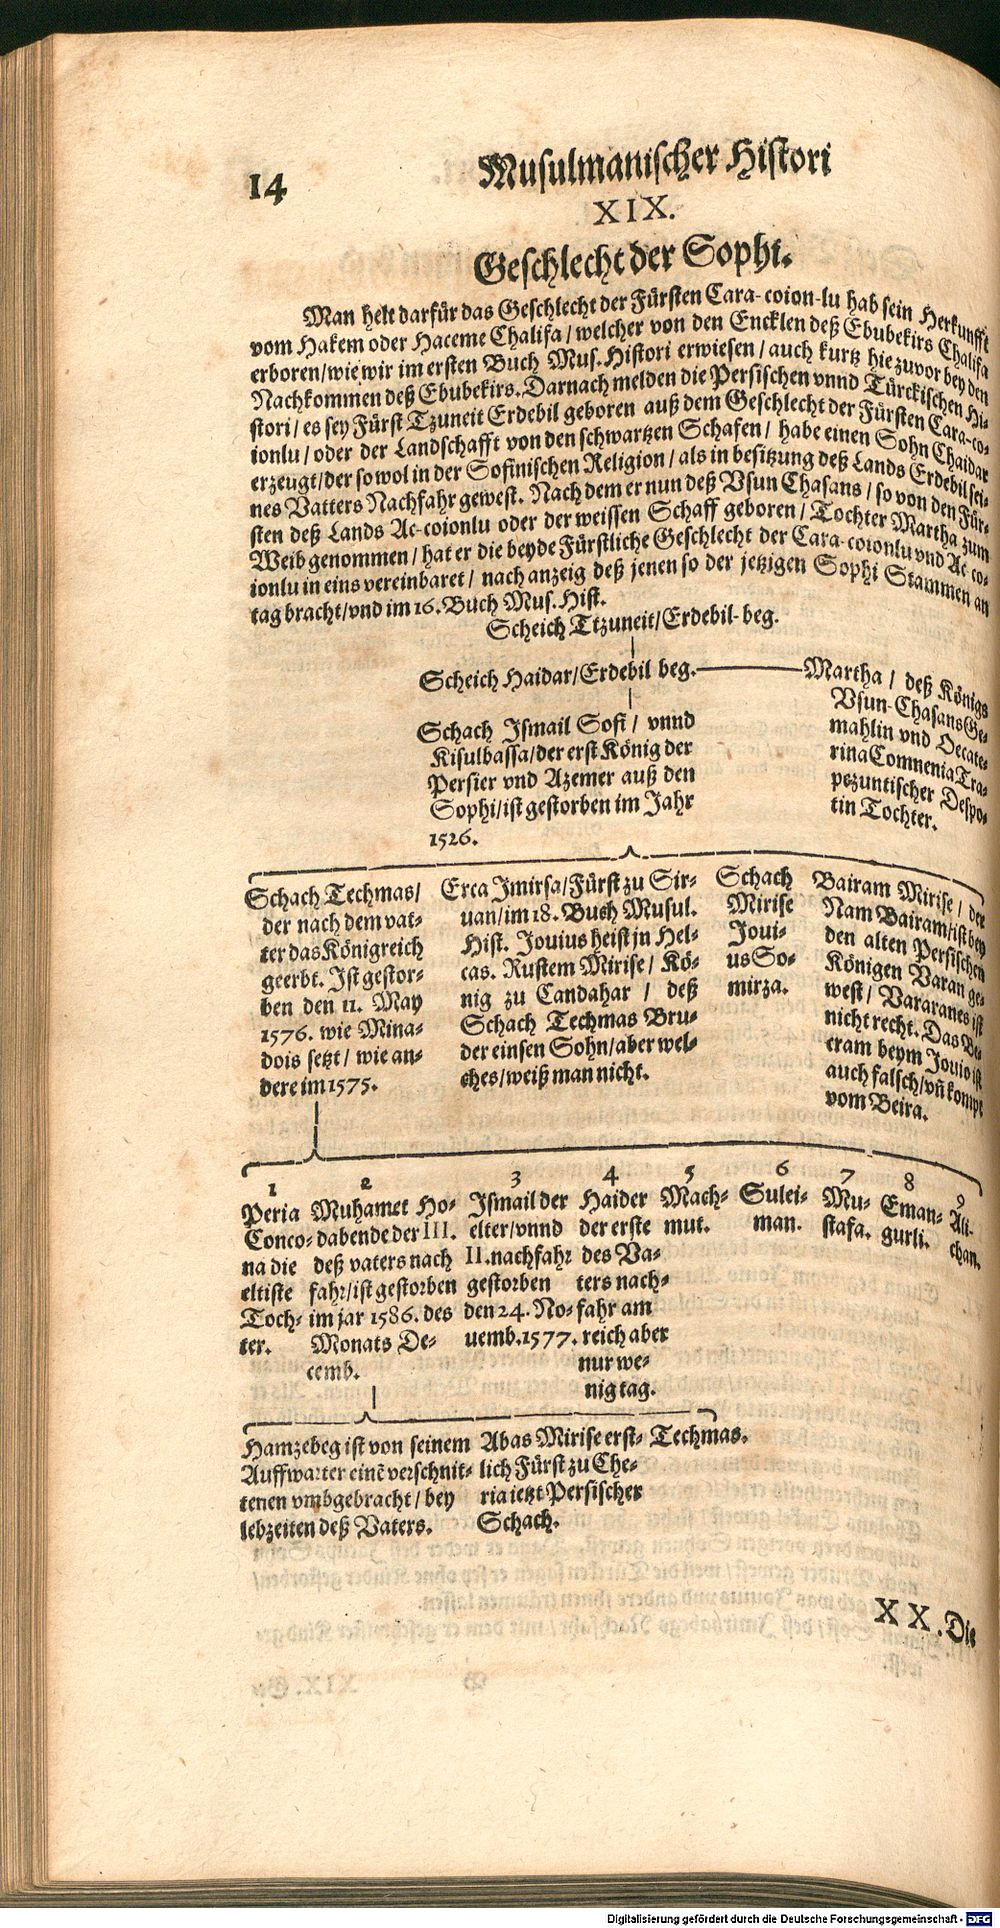 14
Musulmanischer Histori
XIX.
Geschlecht der Sophi.
Man helt darfür das Geschlecht der Fürsten Cara-coion-lu hab sein Herkunfft
vom Hakem oder Haceme Chalifa/ welcher von den Encklen deß Ebubekirs Chalifa
erboren/ wie wir im ersten Buch Mus. Histori erwiesen/ auch kurtz hiezuvor bey den
Nachkommen deß Ebubekirs. Darnach melden die Persischen vnnd Türckischen Hi-
stori/ es sey Fürst Tzuneit Erdebil geboren auß dem Geschlecht der Fürsten Cara-co-
ionlu/ oder der Landschafft von den schwartzen Schafen/ habe einen Sohn Chaidar
erzeugt/ der so wol in der Sofinischen Religion/ als in besitzung deß Lands Erdebil sei-
nes Vatters Nachfahr gewest. Nach dem er nun deß Vsun Chasans/ so von den Für-
sten deß Lands Ac-coionlu oder der weissen Schaff geboren/ Tochter Martha zum
Weib genommen/ hat er die beyde Fürstliche Geschlecht der Cara-coionlu vnd Ac co-
ionlu in eins vereinbaret/ nach anzeig deß jenen so der jetzigen Sophi Stammen an
tag bracht/ vnd im 16. Buch Mus. Hist.
Scheich Ttzuneit/ Erdebil-beg.
Scheich Haidar/ Erdebil beg.
Martha/ deß Königs
Vsun-Chasans Ge-
mahlin vnd Decate-
rina Comnenia Tra-
pezuntischer Despo-
tin Tochter.
Schach Ismail Sofi/ vnnd
Kisulbassa/ der erst König der
Persier vnd Azemer auß den
Sophi/ ist gestorben im Jahr
1526.
Schach Techmas/
der nach dem vat-
ter das Königreich
geerbt. Ist gestor-
ben den 11. May
1576. wie Mina-
dois setzt/ wie an-
dere im 1575.
Erca Imirsa/ Fürst zu Sir-
uan/ im 18. Buch Musul.
Hist. Jouius heist jn Hel-
cas. Rustem Mirise/ Kö-
nig zu Candahar/ deß
Schach Techmas Bru-
der einsen Sohn/ aber wel-
ches/ weiß man nicht.
Schach
Mirise
Joui-
us So-
mirza.
Bairam Mirise/ der
Nam Bairam/ ist bey
den alten Persischen
Königen Varan ge-
west/ Vararanes ist
nicht recht. Das Be-
eram beym Jouio ist
auch falsch/ vñ kompt
vom Beira.
1
Peria
Conco-
na die
eltiste
Toch-
ter.
2
Muhamet Ho-
dabende der III.
deß vaters nach
fahr/ ist gestorben
im jar 1586. des
Monats De-
cemb.
3
Ismail der
elter/ vnnd
II. nachfahr
gestorben
den 24. No-
uemb. 1577.
4
Haider
der erste
des Va-
ters nach-
fahr am
reich aber
nur we-
nig tag.
5
Mach-
mut.
6
Sulei-
man.
7
Mu-
stafa.
8
Eman-
gurli.
9
Ali-
chan.
Hamzebeg ist von seinem
Auffwarter einẽ verschnit-
tenen vmbgebracht/ bey
lebzeiten deß Vaters.
Abas Mirise erst-
lich Fürst zu Che-
ria ietzt Persischer
Schach.
Techmas.
XX. Die
Digitalisierung gefördert durch die Deutsche Forschungsgemeinschaft - DFG